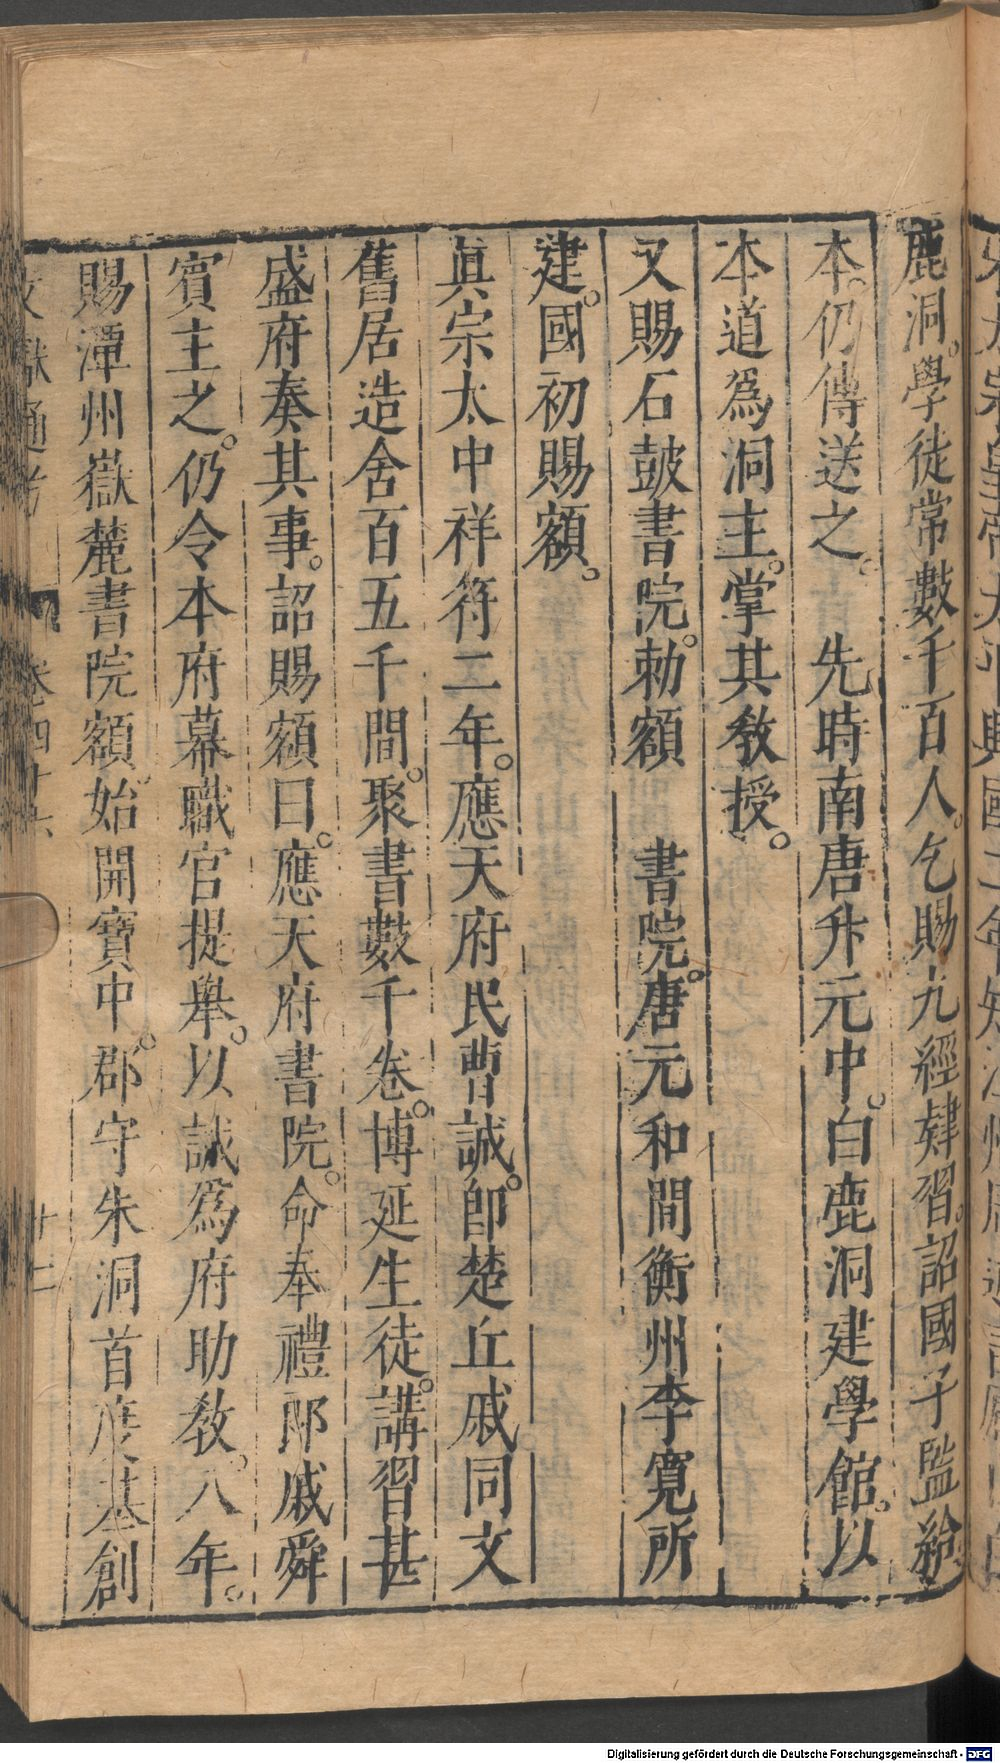 鹿洞。學徒常數千百人。乞賜九經肄習。詔國子監給
本。仍傳送之。　先時南唐升元中。白鹿洞建學館。以
本道爲洞主。掌其敎授。
又賜石鼓書院。勅額　書院。唐元和間衡州李寬所
建。國初賜額。
眞宗太中祥符二年。應天府民曹誠。卽楚丘戚同文
舊居造舍百五千間。聚書數千卷。博延生徒。講習甚
盛府奏其事。詔賜額曰。應天府書院。命奉禮郎戚舜
賓主之。仍令本府幕職官提舉。以誠爲府助敎。八年。
賜潭州嶽麓書院額。始開寶中。郡守朱洞首度基創
文獻通考　卷四十六　十二
Digitalisierung gefördert durch die Deutsche Forschungsgemeinschaft - DFG